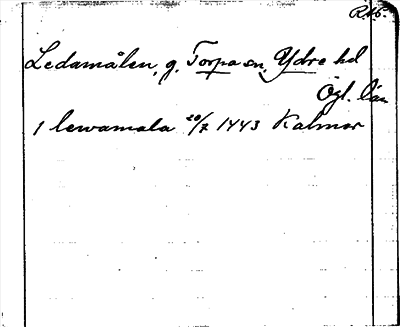 RAp.
Ledamålen, g. Torpa sn, Ydre hd
Ögl. län
1 lewamala 20/7 1443 Kalmar